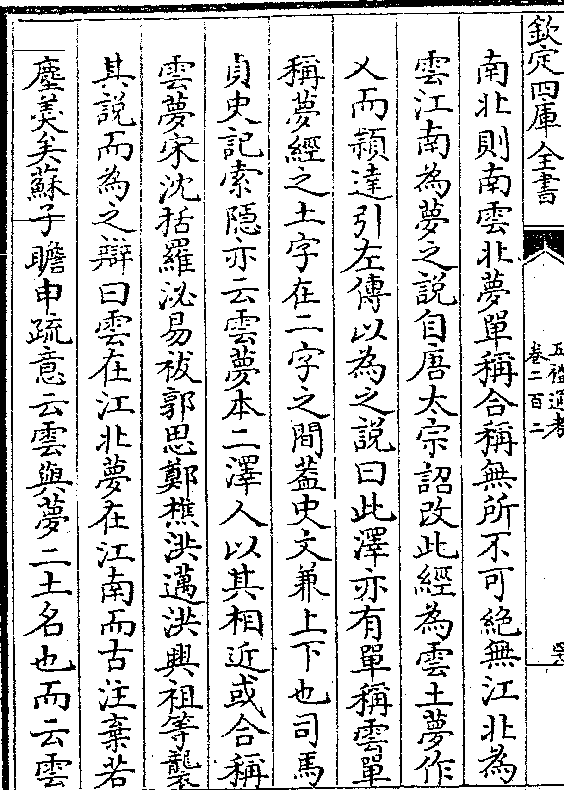 欽定四庫全書
五禮通考
卷二百二
南北則南雲北夢單稱合稱無所不可絶無江北為
雲江南為夢之説自唐太宗詔改此經為雲土夢作
乂而穎達引左傳以為之説曰此澤亦有單稱雲單
稱夢經之土字在二字之間葢史文兼上下也司馬
貞史記索隠亦云雲夢本二澤人以其相近或合稱
雲夢宋沈括羅泌易祓郭思鄭樵洪邁洪興祖等襲
其説而為之辯曰雲在江北夢在江南而古注棄若
塵羹矣蘇子瞻申疏意云雲與夢二土名也而云雲